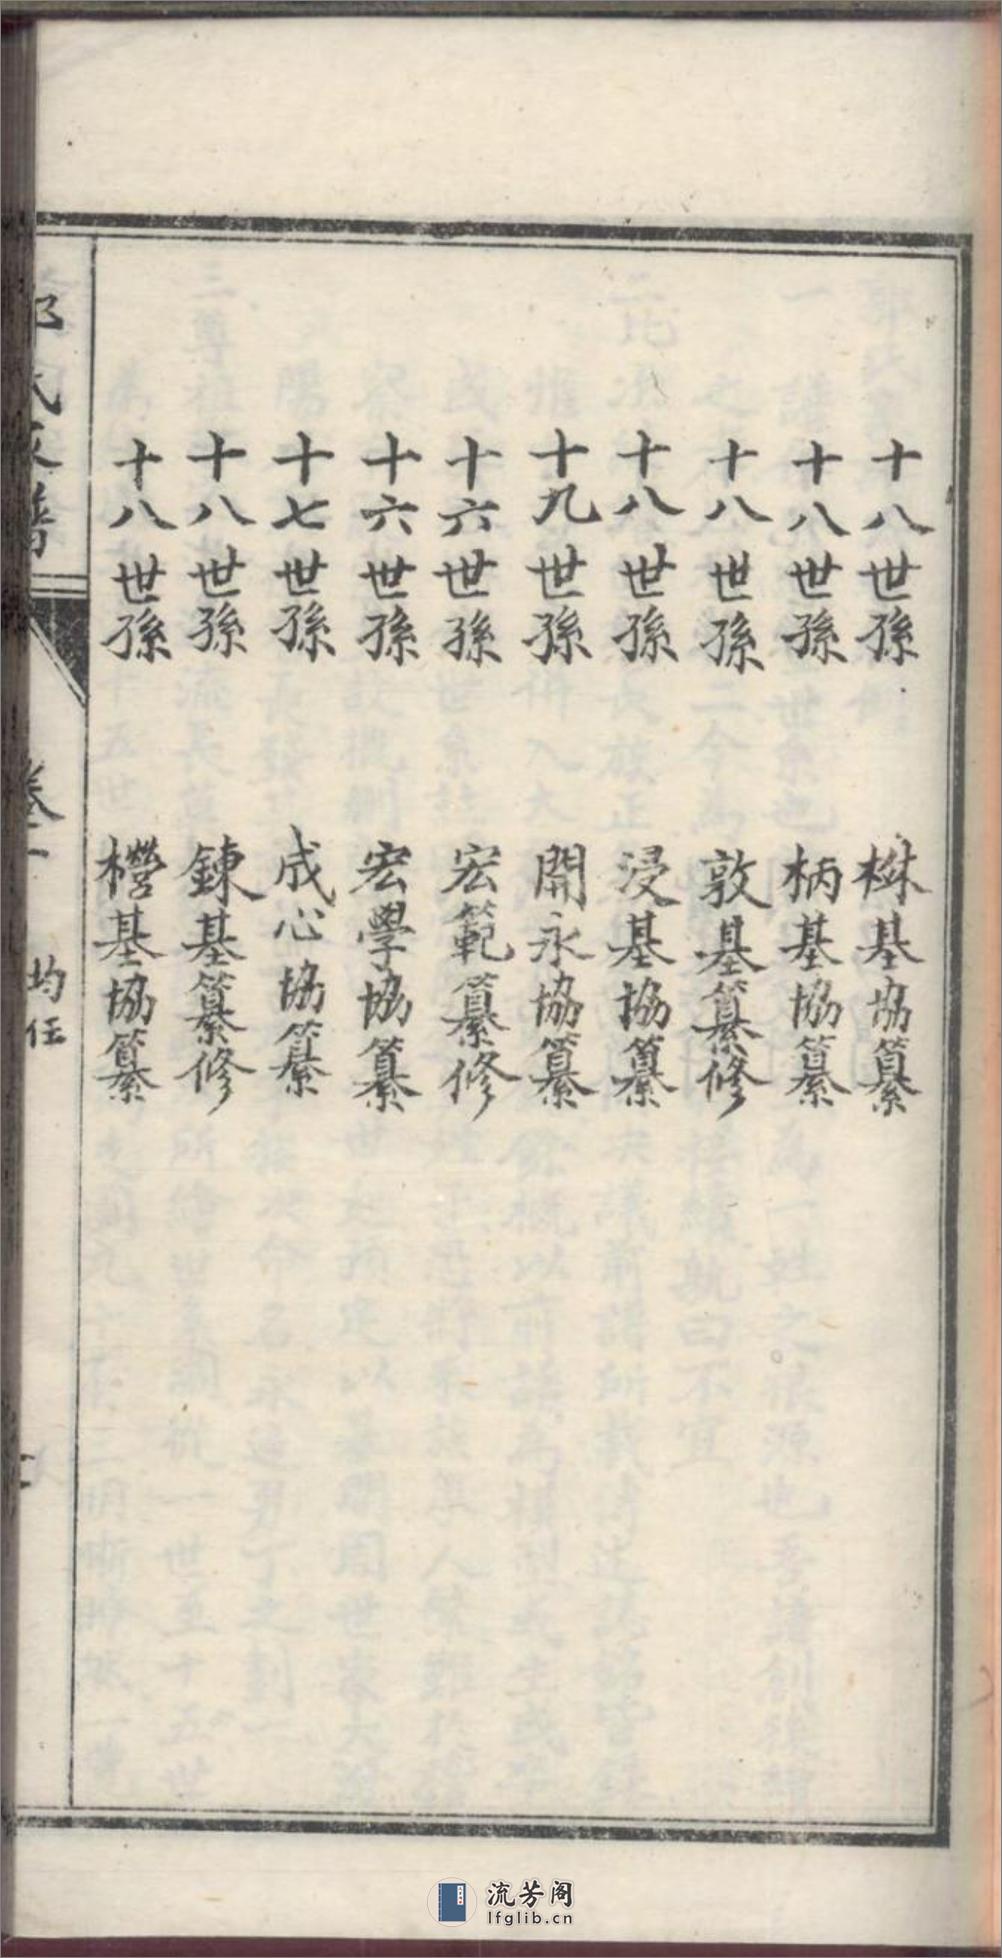 十八世孫 楙基協纂
十八世孫 柄基協纂
十八世孫 敦基纂修
十八世孫 浸基協纂
十九世孫 開永協纂
十六世孫 宏範纂修
十六世孫 宏學協纂
十七世孫 成心協纂
十八世孫 鍊基纂修
十八世孫 櫿基協纂
氏 譜
卷一
流芳阁
lfglib.cn